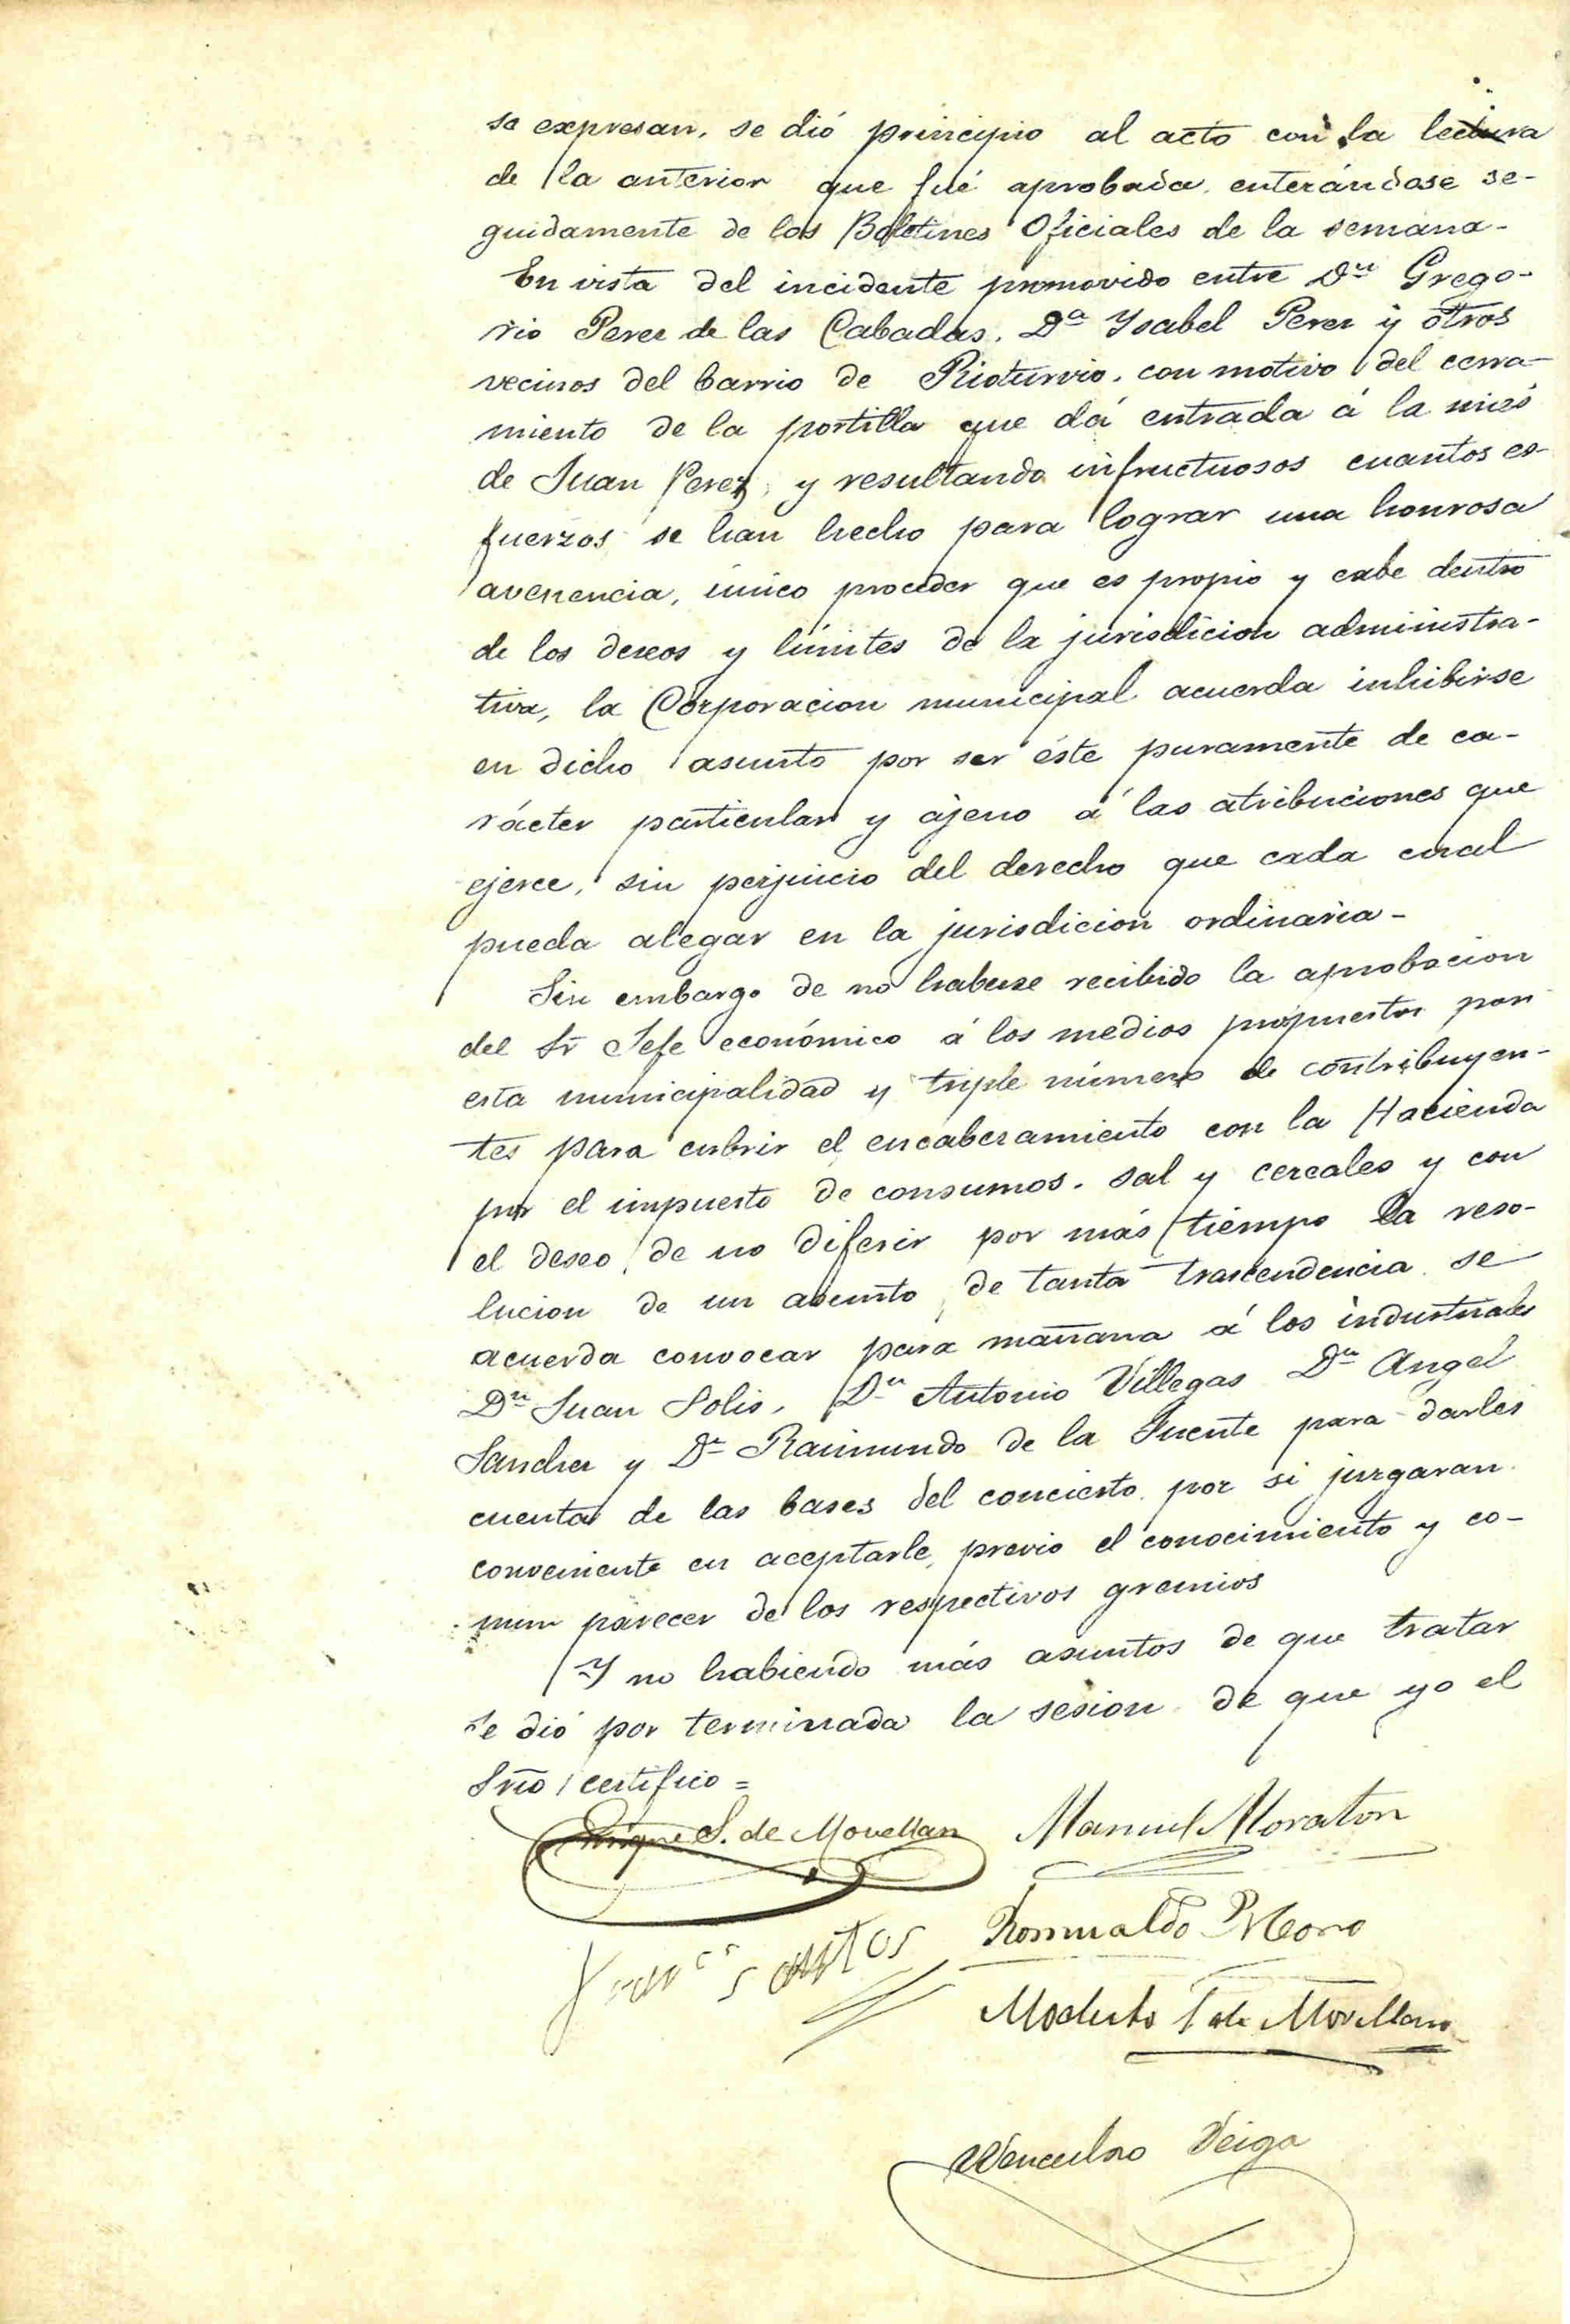 se expresan, se dió principio al acto con la lectura
de la anterior que fué aprobada, enterándose se-
guidamente de los Boletines Oficiales de la semana-
En vista del incidente promovido entre Dn Grego-
rio Perez de las Cabadas, Da Ysabel Perez y otros
vecinos del barrio de Rioturvio, con motivo del cerra-
miento de la portilla que dá entrada á la mies
de Juan Perez, y resultando infructuosos cuantos es-
fuerzos se han hecho para lograr una honrosa
avenencia, único proceder que es propio y cabe dentro
de los deseos y límites de la jurisdicion administra-
tiva, la Corporacion municipal acuerda inhibirse
en dicho asunto por ser éste puramente de ca-
rácter particular y ajeno á las atribuciones que
ejerce, sin perjuicio del derecho que cada cual
pueda alegar en la jurisdicion ordinaria-
Sin embargo de no haberse recibido la aprobacion
del Sr Jefe económico á los medios propuestos por
esta municipalidad y triple número de contribuyen-
tes para cubrir el encabezamiento con la Hacienda
por el impuesto de consumos, sal y cereales y con
el deseo de no diferir por más tiempo la reso-
lucion de un asunto de tanta trascendencia se
acuerda convocar para mañana á los industriales
Dn Juan Solis, Dn Antonio Villegas Dn Angel
Sanchez y Dn Raimundo de la Fuente para darles
cuenta de las bases del concierto por si juzgaran
conveniente en aceptarle, previo el conocimiento y co-
mun parecer de los respectivos gremios
Y no habiendo más asuntos de que tratar
se dió por terminada la sesion de que yo el
Srio certifico =
Enrique S. de Movellan Manuel Moraton
Romualdo P Moro
Franco Santos
Modesto S de Movellan
Wenceslao Veiga